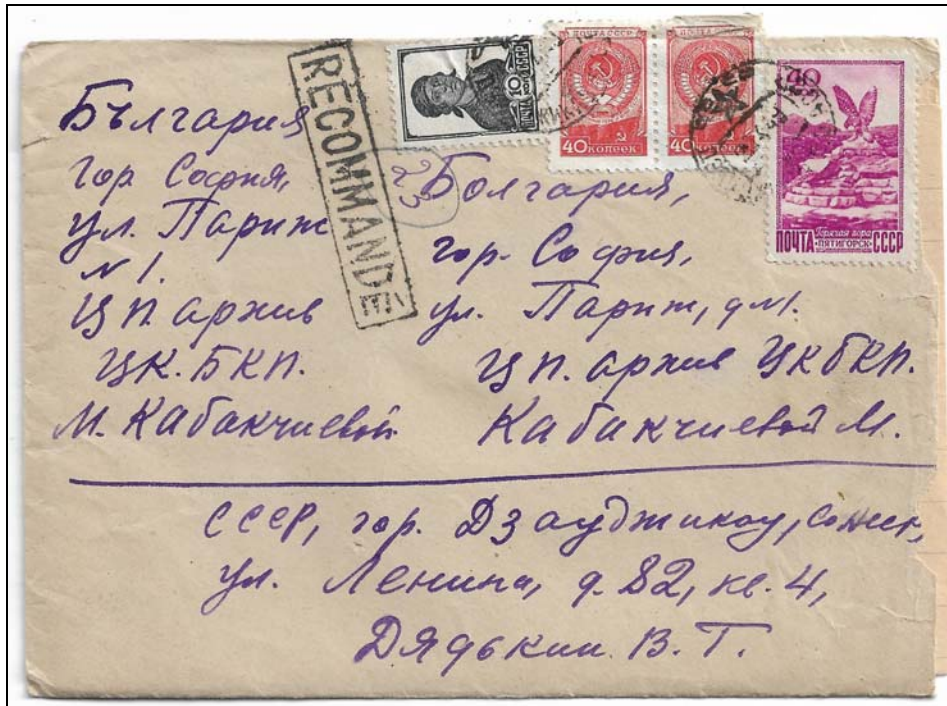 10
ПОЧТА СССР
ПОЧТА СССР
40 КОПЕЕК
ПОЧТА СССР
40 КОПЕЕК
40
Горячая гора
ПОЧТА •ПЯТИГОРСК• СССР
RECOMMANDÉ
23
България
гор София,
ул. Париж
N 1.
ЦП. архив
ЦК. БКП.
М. Кабакчиевой
Болгария,
гор. София,
ул. Париж, д N1.
ЦП. архив ЦКБКП.
Кабакчиевой М.
СССР, гор. Дзауджикау,
ул. Ленина, д. 82, кв. 4,
Дядькин В. Т.